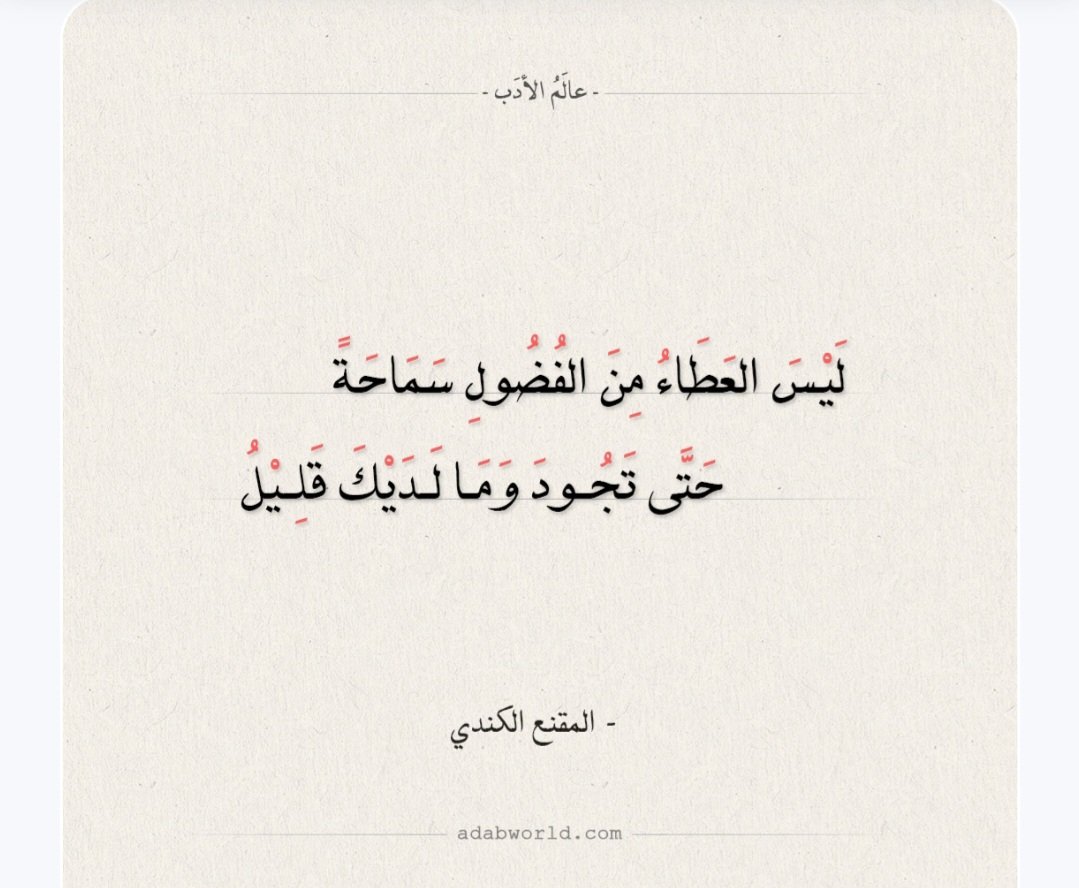 - عالَمُ الأدَب -
لَيْسَ العَطَاءُ مِنَ الفُضُولِ سَمَاحَةً
حَتَّى تَجُـودَ وَمَـا لَـدَيْكَ قَلِـيْلُ
- المقنع الكندي
adabworld.com